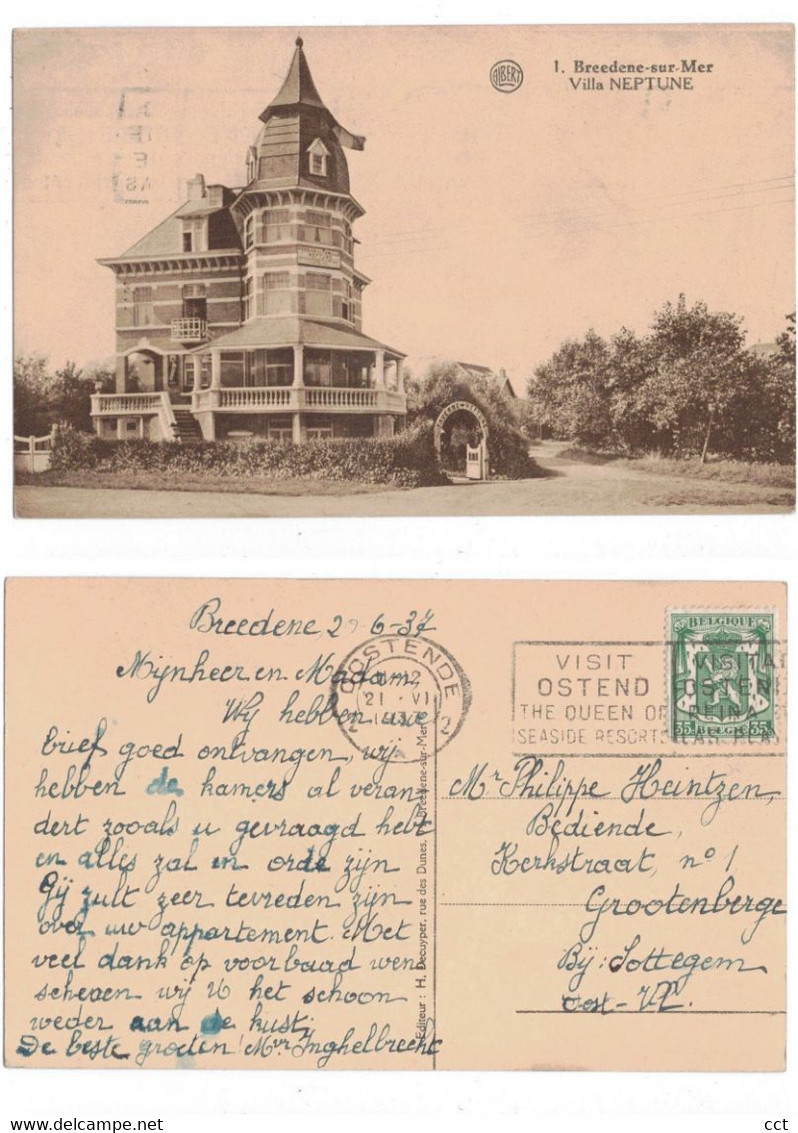 ALBERT
1. Breedene-sur-Mer
Villa NEPTUNE
Breedene 20-6-37
Mijnheer en Madam,
Wij hebben uwe
brief goed ontvangen, wij
hebben de kamers al veran-
dert zooals u gevraagd hebt
en alles zal in orde zijn
Gij zult zeer tevreden zijn
over uw appartement. Met
veel dank op voorbaad wen-
schexen wij U het schoon
weder aan de kust;
De beste groeten! Mvr Inghelbrecht
Editeur : H. Decuyper, rue des Dunes, Breedene-sur-Mer
OOSTENDE
21 . VI
1937
2 2
VISIT
OSTEND
THE QUEEN OF
SEASIDE RESORTS
VISITA
OSTEN
REINA
LAS PLAS
BELGIQUE
35 35
BELGIE
Mr Philippe Heintzen,
Bediende,
Kerkstraat, n° 1
Grootenberge
Bij: Sottegem
Oost-Vl.
www.delcampe.net
cct